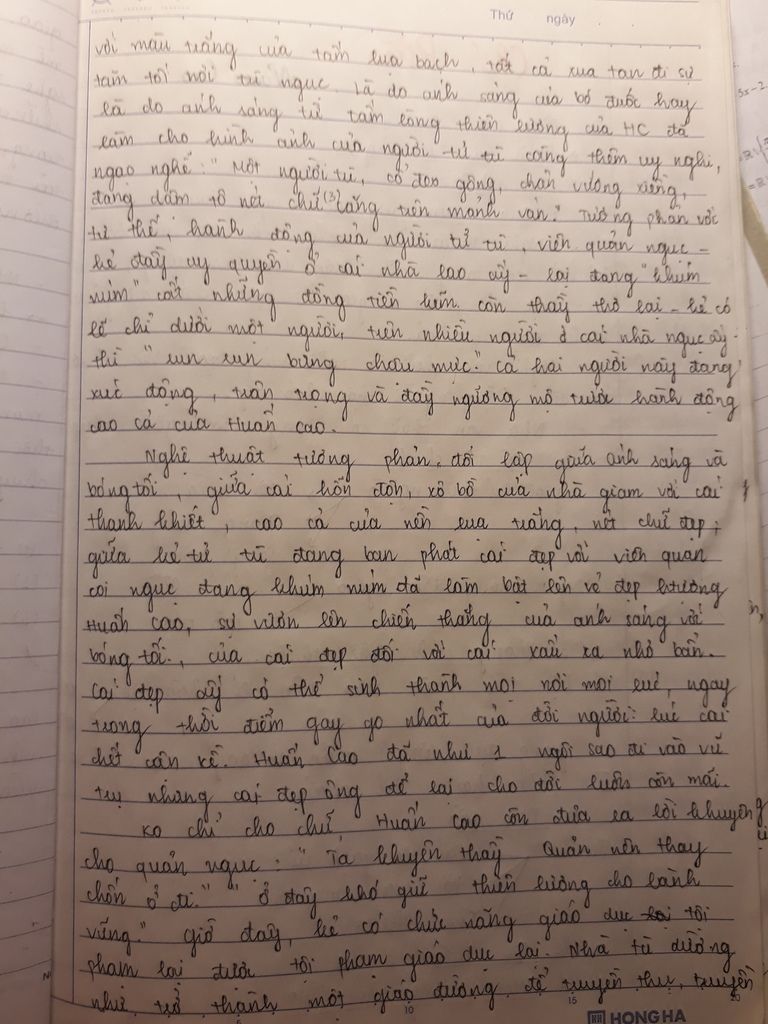 Thứ ngày
với màu trắng của tấm lụa bạch, tất cả xua tan đi sự
tăm tối nơi tù ngục. Là do ánh sáng của bó đuốc hay
là do ánh sáng từ tấm lòng thiên lương của HC đã
làm cho hình ảnh của người tử tù càng thêm uy nghi,
ngạo nghễ: "Một người tù, cổ đeo gông, chân vướng xiềng,
đang dậm tô nét chữ (3) trắng trên mảnh ván." Tương phản với
tư thế, hành động của người tử tù, viên quản ngục -
kẻ đầy uy quyền ở cái nhà lao ấy - lại đang "khúm
núm" cất những đồng tiền kẽm. còn thầy thơ lại - kẻ có
lẽ chỉ dưới một người, trên nhiều người ở cái nhà ngục ấy -
thì "run run bưng chậu mực." Cả hai người này đang
xúc động, trân trọng và đầy ngưỡng mộ trước hành động
cao cả của Huấn Cao.
Nghệ thuật tương phản, đối lập giữa ánh sáng và
bóng tối, giữa cái hỗn độn, xô bồ của nhà giam với cái
thanh khiết, cao cả của nền lụa trắng, nét chữ đẹp;
giữa kẻ tử tù đang ban phát cái đẹp với viên quan
coi ngục đang khúm núm đã làm bật lên vẻ đẹp h.tượng
Huấn Cao, sự vươn lên chiến thắng của ánh sáng với
bóng tối, của cái đẹp đối với cái xấu xa nhơ bẩn.
Cái đẹp ấy có thể sinh thành mọi nơi mọi lúc, ngay
trong thời điểm gay go nhất của đời người: lúc cái
chết cận kề. Huấn Cao đã như 1 ngôi sao đi vào vũ
trụ nhưng cái đẹp ông để lại cho đời luôn còn mãi.
Ko chỉ cho chữ, Huấn Cao còn đưa ra lời khuyên
cho quản ngục: "Ta khuyên thầy Quản nên thay
chốn ở đi." "Ở đây khó giữ thiên lương cho lành
vững." Giờ đây, kẻ có chức năng giáo dục tội
phạm lại được tội phạm giáo dục lại. Nhà tù dường
như trở thành một giáo đường để truyền thụ, truyền
HONG HA